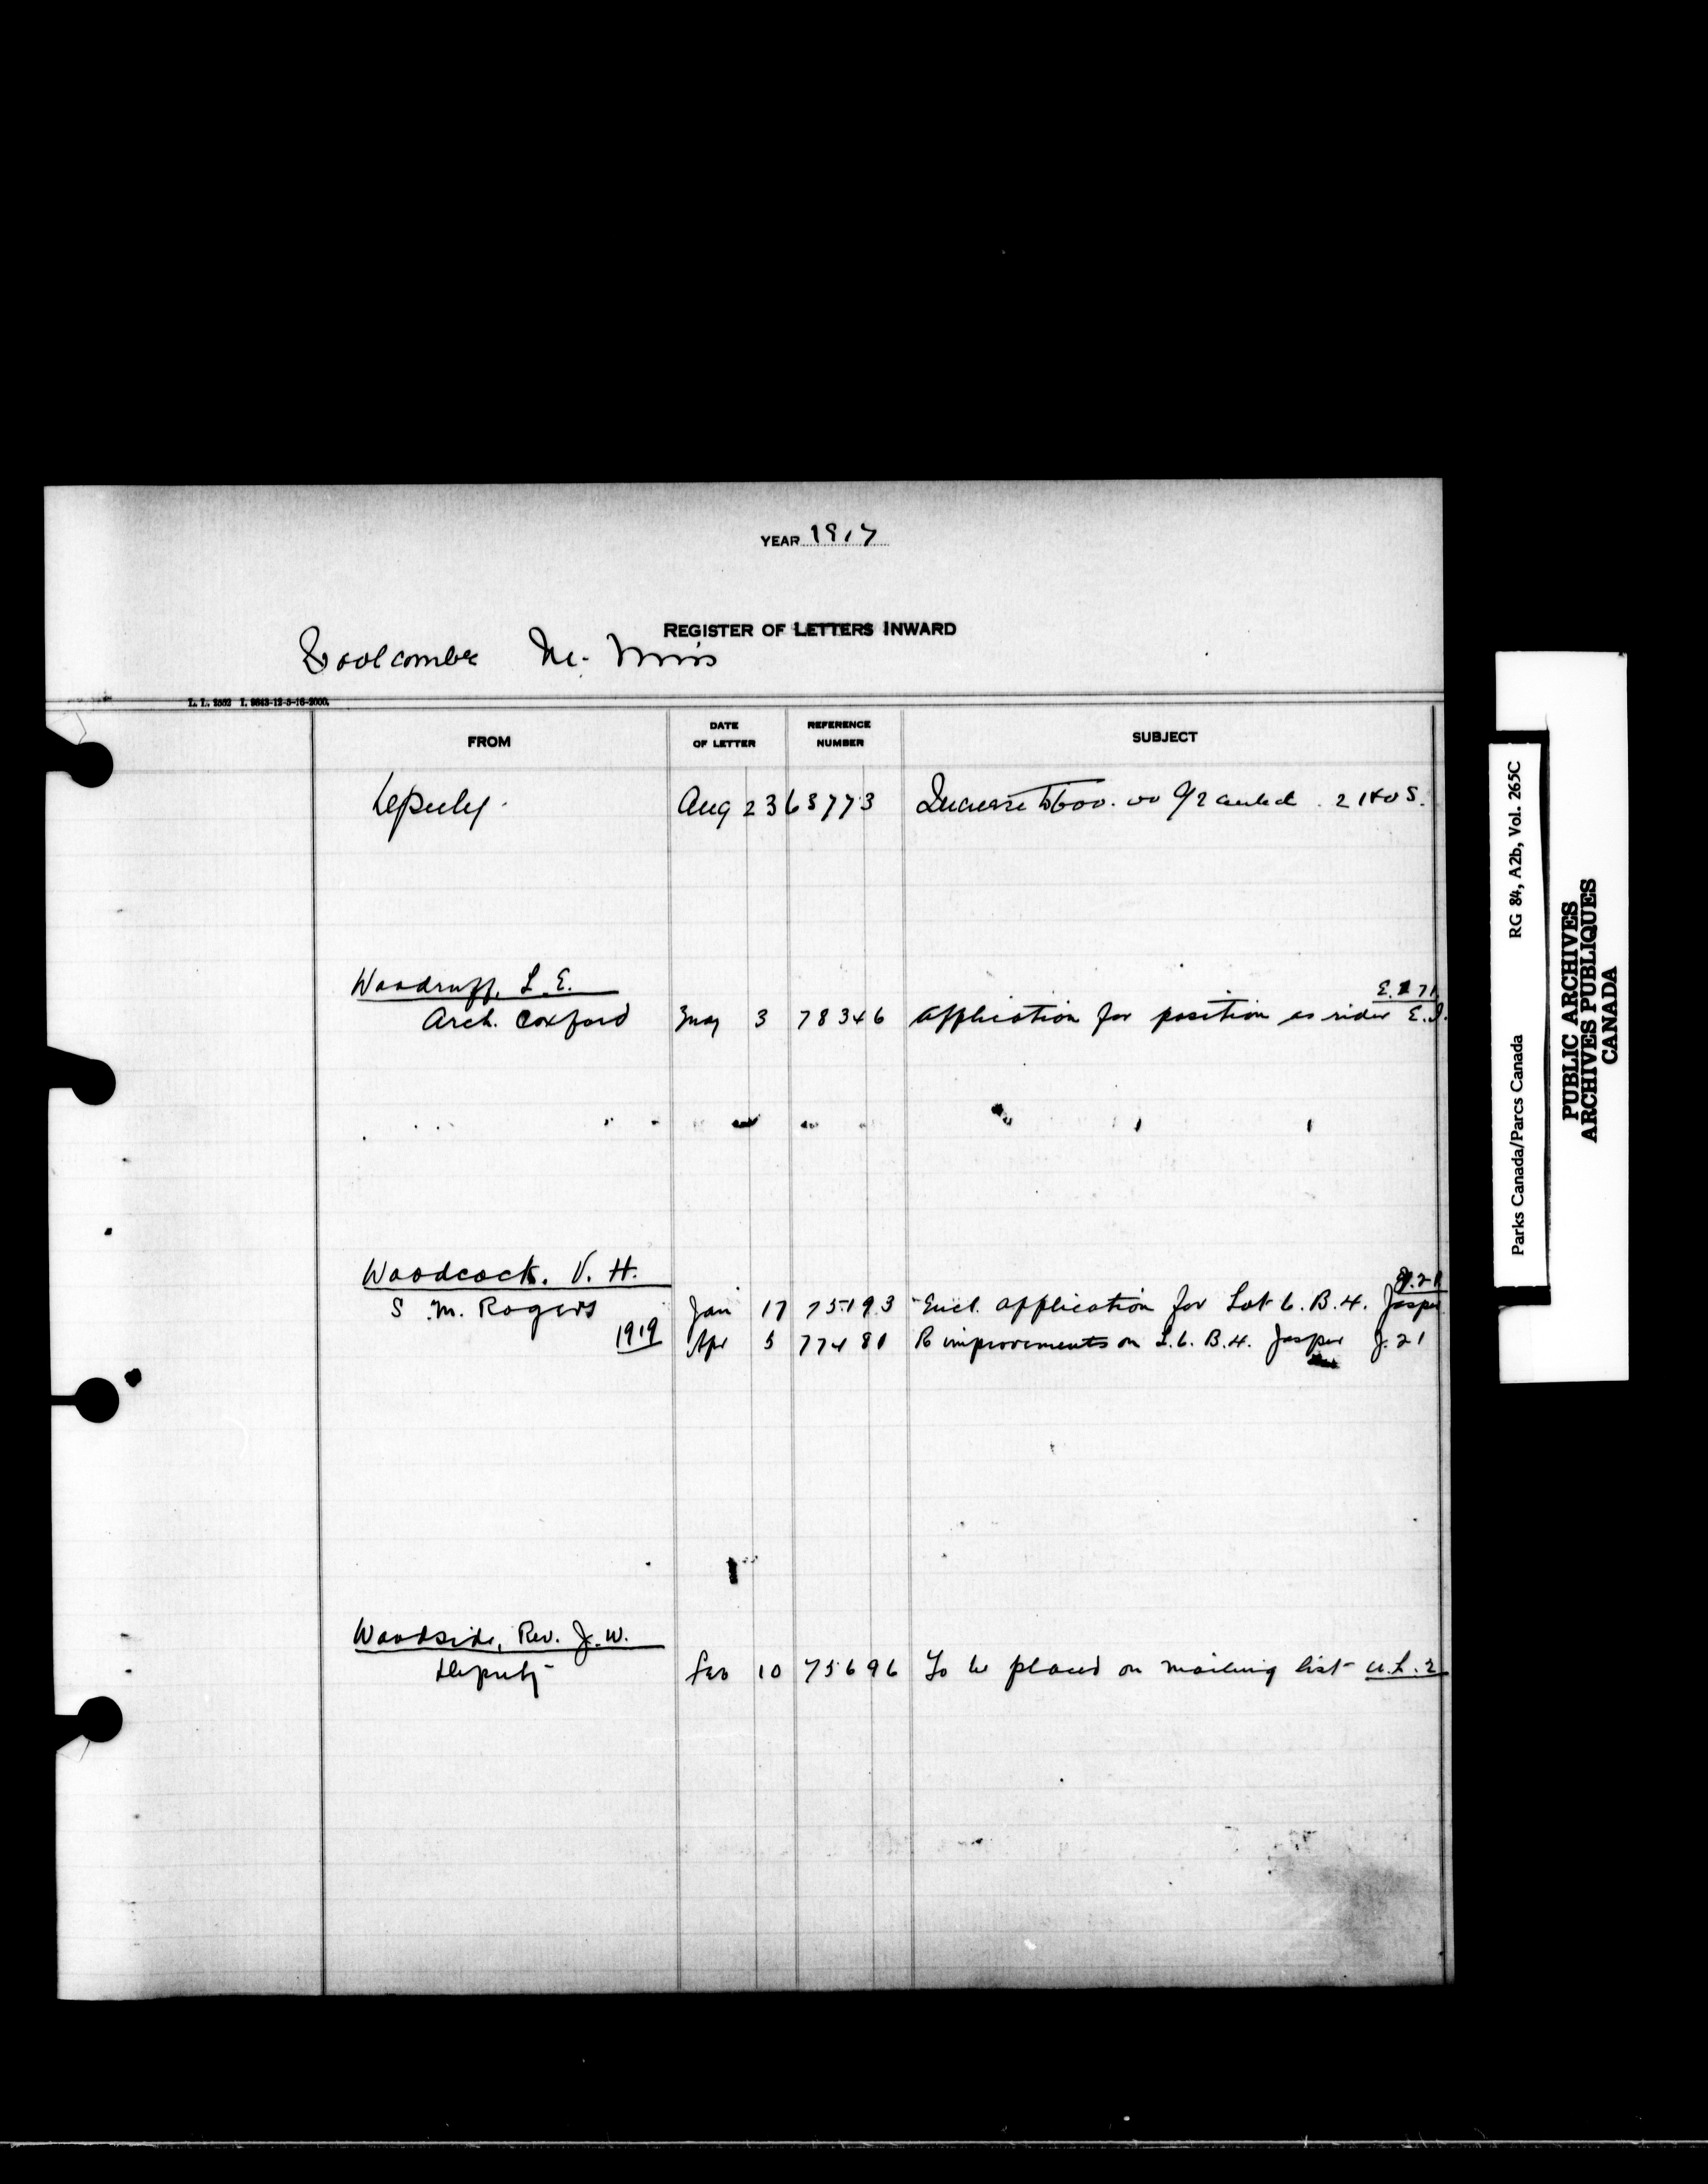 YEAR 1917
REGISTER OF LETTERS INWARD
Woolcombe M. Miss
L. L. 2552 I. 9643-12-5-16-2000.
FROM DATE OF LETTER REFERENCE NUMBER SUBJECT
Deputy. Aug 23 63773 Increase to 600.00 Granted
Woodruff, L. E. E. 71
Arch. Coxford May 3 78346 Application for position as rider E.I.
Woodcock. V. H. J.21
S. M. Rogers Jan 17 75193 Encl. application for Lot 6. B.4. Jasper
1919 Apr 5 77481 Re improvements on L.6. B.4. Jasper J.21
Woodside, Rev. J. W.
Deputy Feb 10 75696 To be placed on mailing list U.L.2
Parks Canada/Parcs Canada RG 84, A2b, Vol. 265C
PUBLIC ARCHIVES
ARCHIVES PUBLIQUES
CANADA